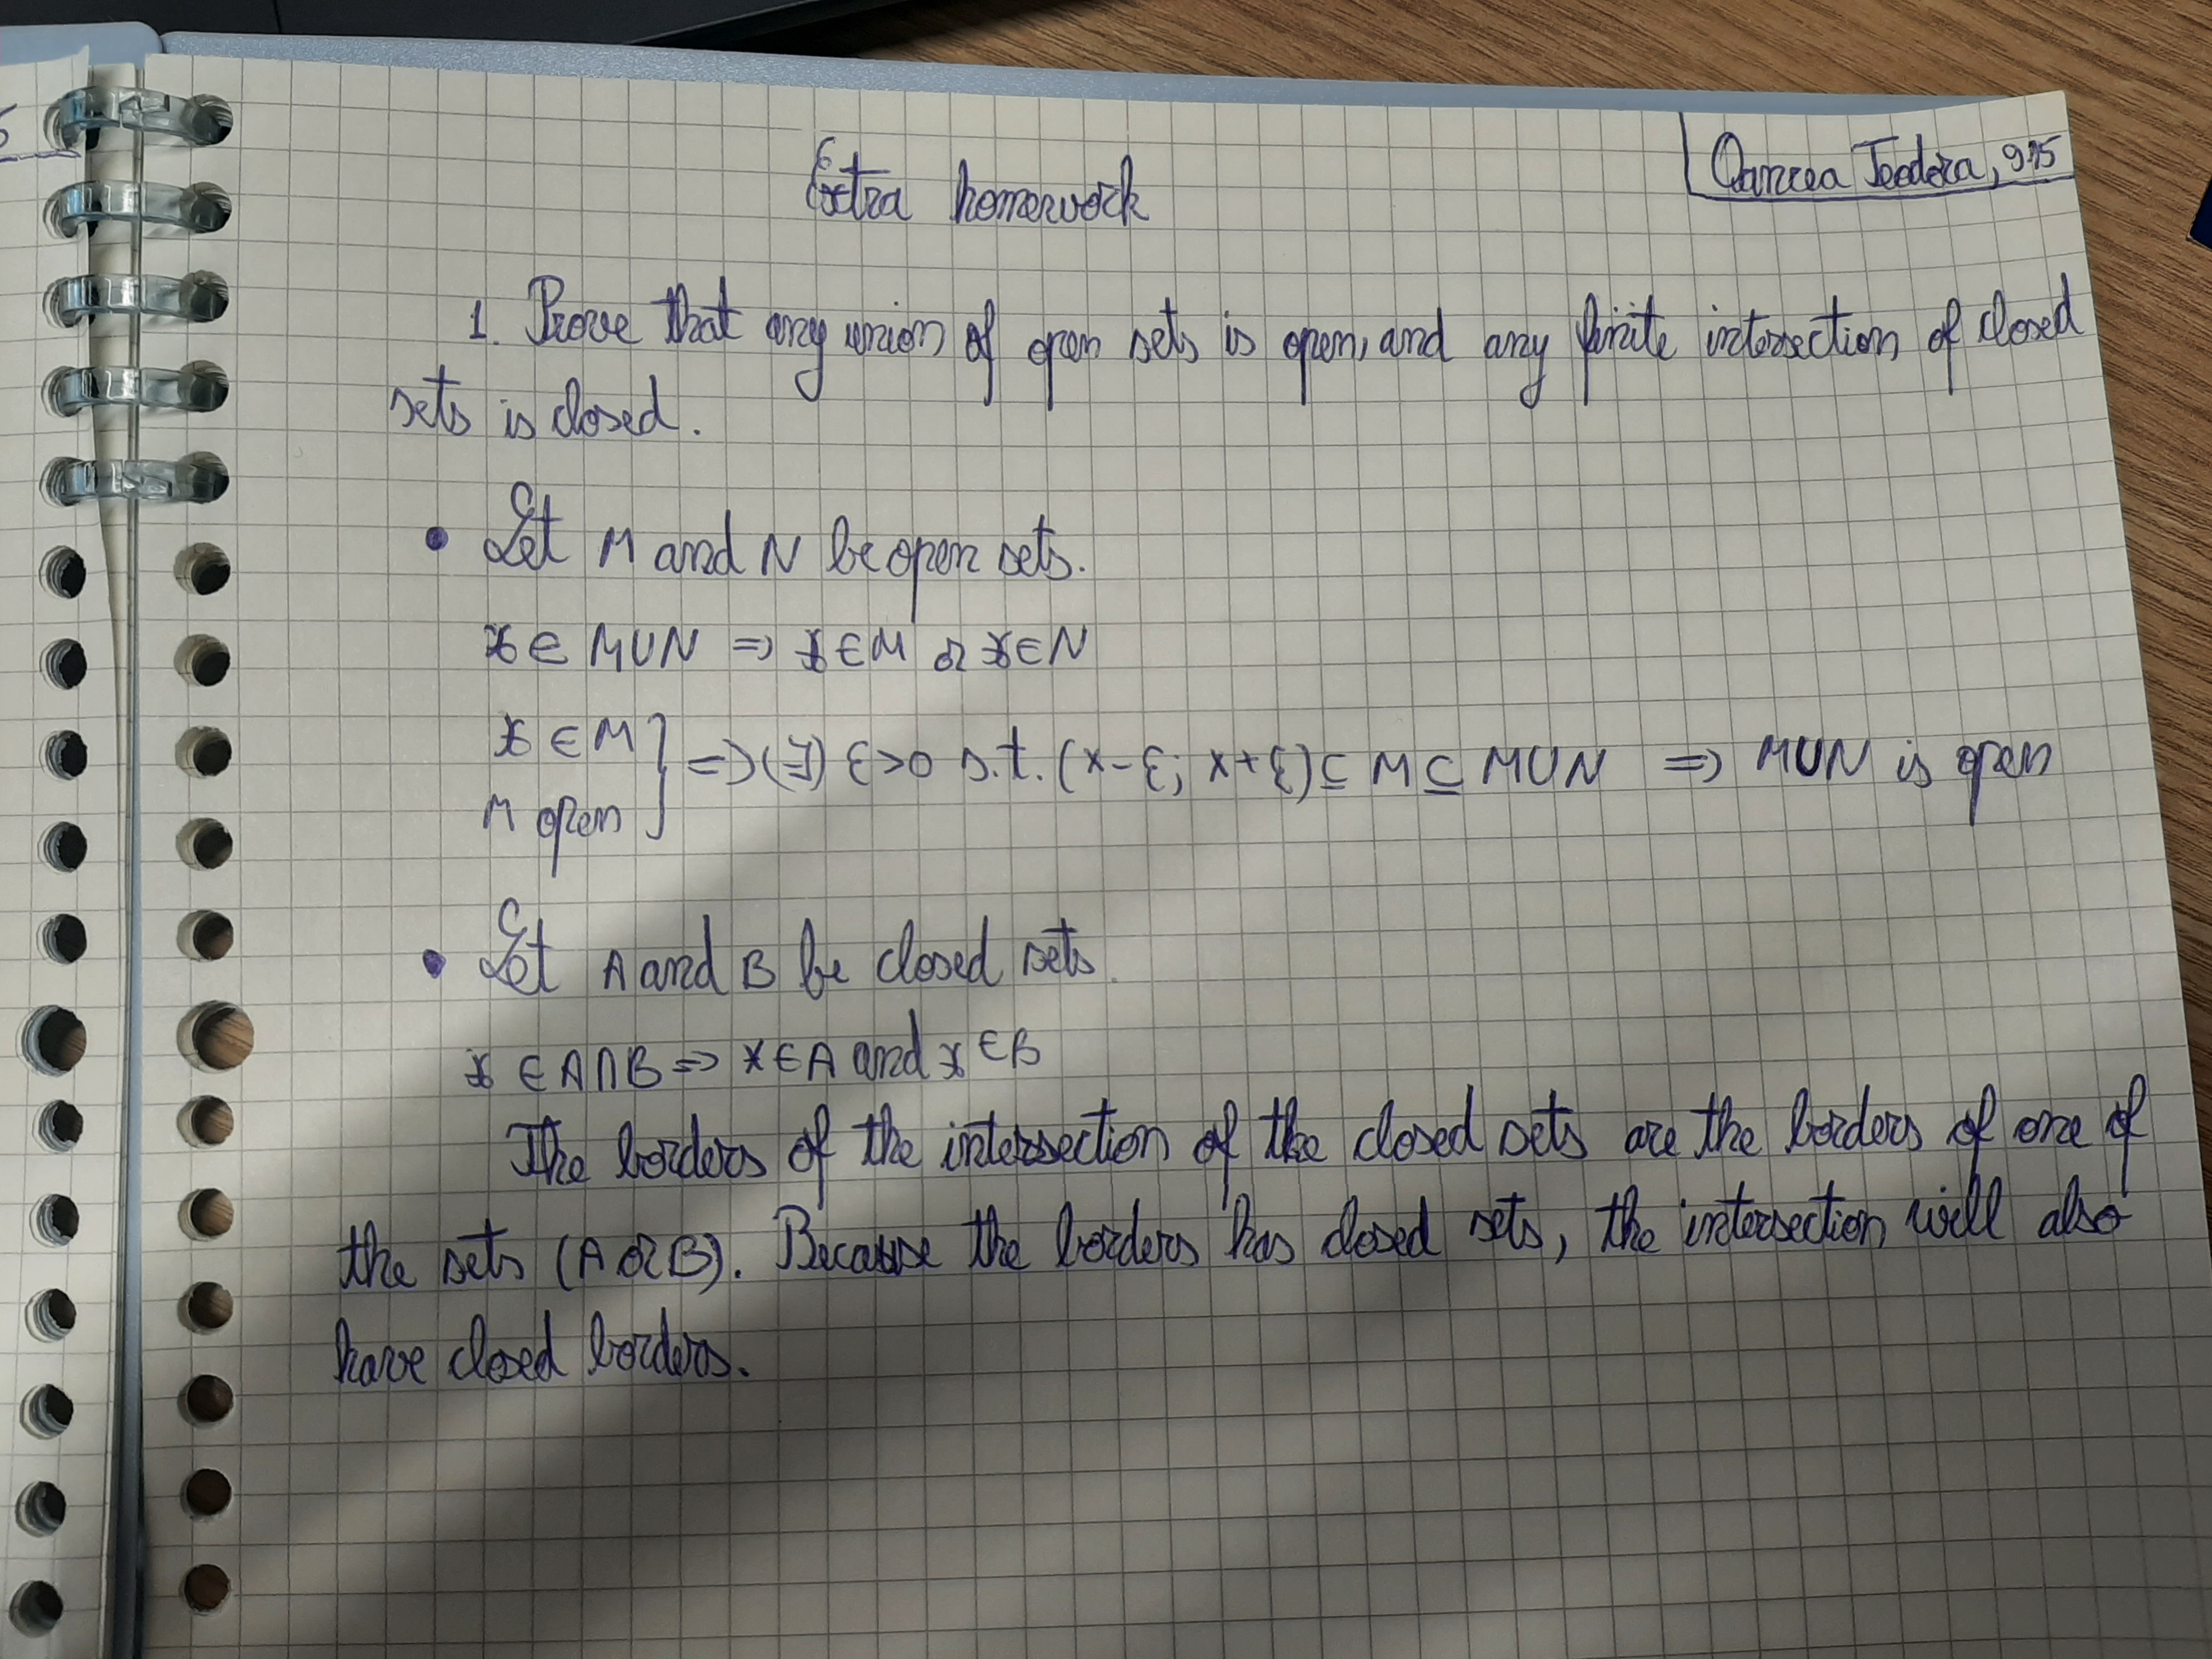 5
Extra homework
Oancea Teodora, 915
1. Prove that any union of open sets is open, and any finite intersection of closed
sets is closed.
• Let M and N be open sets.
x ∈ M∪N => x∈M or x∈N
x ∈ M } => (∃) ε>0 s.t. (x-ε; x+ε) ⊆ M ⊆ M∪N => M∪N is open
M open
• Let A and B be closed sets.
x ∈ A∩B => x∈A and x ∈B
The borders of the intersection of the closed sets are the borders of one of
the sets (A or B). Because the borders has closed sets, the intersection will also
have closed borders.